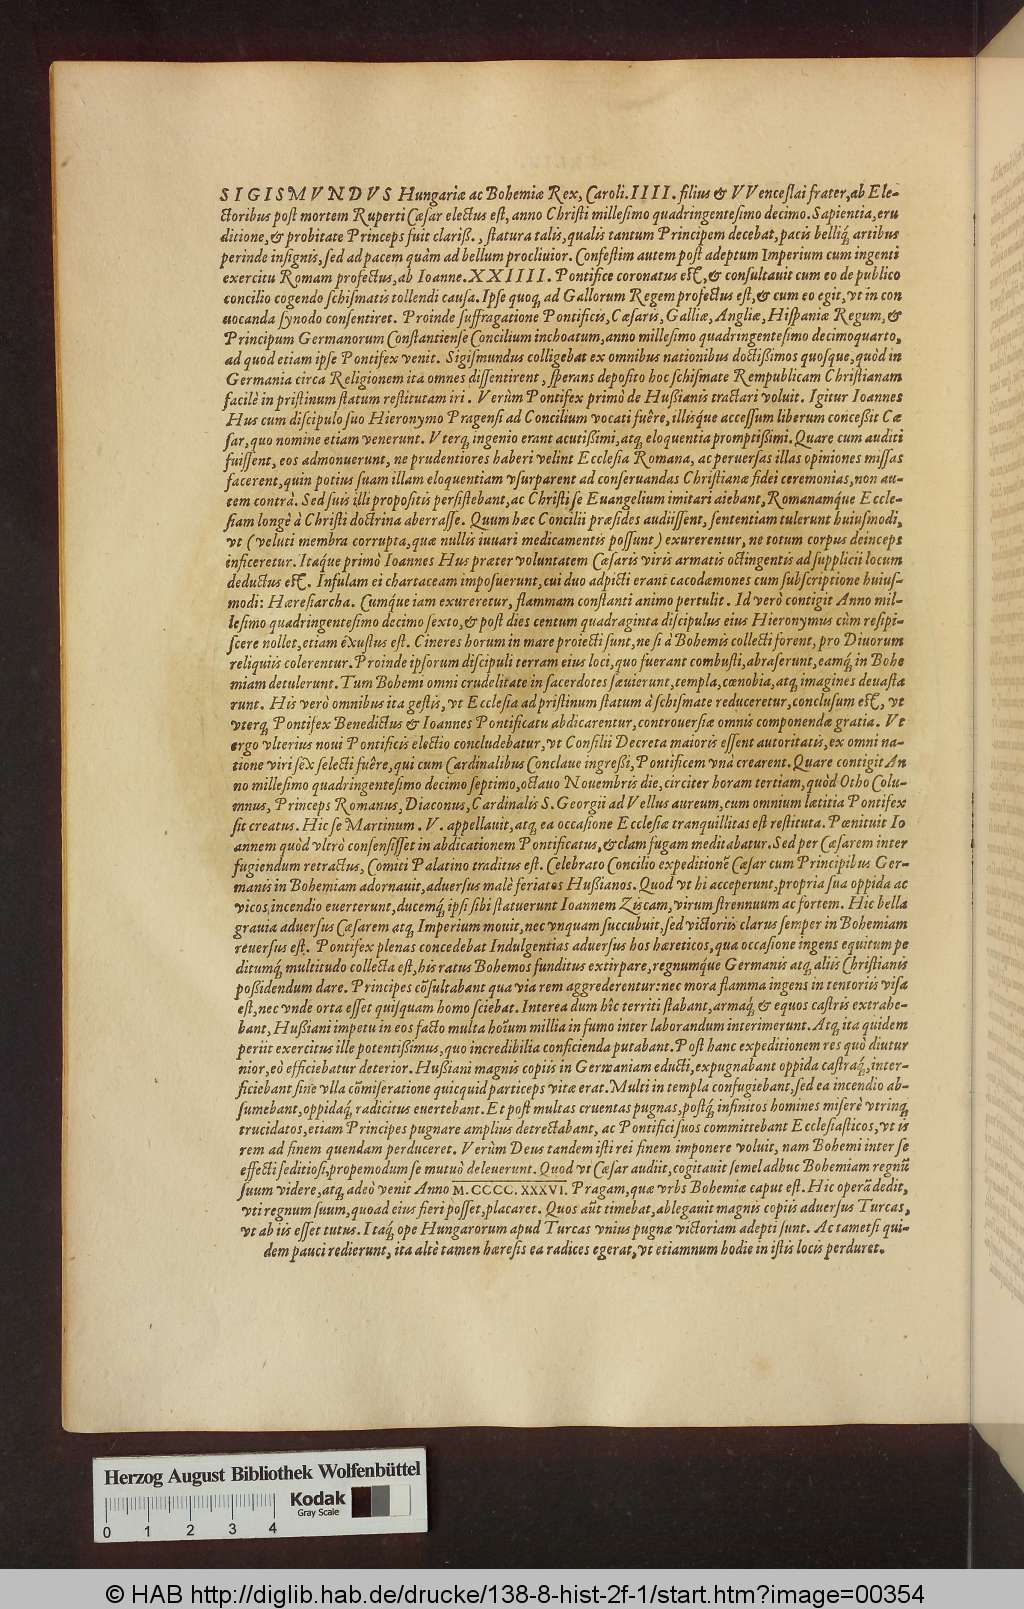 SIGISMVNDVS Hungariæ ac Bohemiæ Rex, Caroli. IIII. filius & VVenceslai frater, ab Ele-
ctoribus post mortem Ruperti Cæsar electus est, anno Christi millesimo quadringentesimo decimo. Sapientia, eru
ditione, & probitate Princeps fuit clariß., statura talis, qualis tantum Principem decebat, pacis belliq́; artibus
perinde insignis, sed ad pacem quàm ad bellum procliuior. Confestim autem post adeptum Imperium cum ingenti
exercitu Romam profectus, ab Ioanne. XXIIII. Pontifice coronatus est, & consultauit cum eo de publico
concilio cogendo schismatis tollendi causa. Ipse quoq; ad Gallorum Regem profectus est, & cum eo egit, vt in con
uocanda synodo consentiret. Proinde suffragatione Pontificis, Cæsaris, Galliæ, Angliæ, Hispaniæ Regum, &
Principum Germanorum Constantiense Concilium inchoatum, anno millesimo quadringentesimo decimoquarto,
ad quod etiam ipse Pontifex venit. Sigismundus colligebat ex omnibus nationibus doctißimos quosque, quòd in
Germania circa Religionem ita omnes dissentirent, sperans deposito hoc schismate Rempublicam Christianam
facilè in pristinum statum restitutam iri. Verùm Pontifex primò de Hußianis tractari voluit. Igitur Ioannes
Hus cum discipulo suo Hieronymo Pragensi ad Concilium vocati fuêre, illisque accessum liberum conceßit Cæ
sar, quo nomine etiam venerunt. Vterq; ingenio erant acutißimi, atq; eloquentia promptißimi. Quare cum auditi
fuissent, eos admonuerunt, ne prudentiores haberi velint Ecclesia Romana, ac peruersas illas opiniones missas
facerent, quin potius suam illam eloquentiam vsurparent ad conseruandas Christianæ fidei ceremonias, non au-
tem contrà. Sed suis illi propositis persistebant, ac Christi se Euangelium imitari aiebant, Romanamque Eccle-
siam longè à Christi doctrina aberrasse. Quum hæc Concilii præsides audiissent, sententiam tulerunt huiusmodi,
vt (veluti membra corrupta, quæ nullis iuuari medicamentis possunt) exurerentur, ne totum corpus deinceps
inficeretur. Itaque primò Ioannes Hus præter voluntatem Cæsaris viris armatis octingentis ad supplicii locum
deductus est. Insulam ei chartaceam imposuerunt, cui duo adpicti erant cacodæmones cum subscriptione huius-
modi: Hæresiarcha. Cumque iam exureretur, flammam constanti animo pertulit. Id verò contigit Anno mil-
lesimo quadringentesimo decimo sexto, & post dies centum quadraginta discipulus eius Hieronymus cùm resipi-
scere nollet, etiam exustus est. Cineres horum in mare proiecti sunt, ne si à Bohemis collecti forent, pro Diuorum
reliquiis colerentur. Proinde ipsorum discipuli terram eius loci, quo fuerant combusti, abraserunt, eamq́; in Bohe
miam detulerunt. Tum Bohemi omni crudelitate in sacerdotes sæuierunt, templa, cœnobia, atq; imagines deuasta
runt. His verò omnibus ita gestis, vt Ecclesia ad pristinum statum à schismate reduceretur, conclusum est, vt
vterq; Pontifex Benedictus & Ioannes Pontificatu abdicarentur, controuersiæ omnis componendæ gratia. Vt
ergo vlterius noui Pontificis electio concludebatur, vt Consilii Decreta maioris essent autoritatis, ex omni na-
tione viri sex selecti fuêre, qui cum Cardinalibus Conclaue ingreßi, Pontificem vnà crearent. Quare contigit An
no millesimo quadringentesimo decimo septimo, octauo Nouembris die, circiter horam tertiam, quòd Otho Colu-
mnus, Princeps Romanus, Diaconus, Cardinalis S. Georgii ad Vellus aureum, cum omnium lætitia Pontifex
sit creatus. Hic se Martinum. V. appellauit, atq; ea occasione Ecclesiæ tranquillitas est restituta. Pœnituit Io
annem quòd vltrò consensisset in abdicationem Pontificatus, & clam fugam meditabatur. Sed per Cæsarem inter
fugiendum retractus, Comiti Palatino traditus est. Celebrato Concilio expeditionē Cæsar cum Principibus Ger-
manis in Bohemiam adornauit, aduersus malè feriatos Hußianos. Quod vt hi acceperunt, propria sua oppida ac
vicos incendio euerterunt, ducemq́; ipsi sibi statuerunt Ioannem Ziscam, virum strennuum ac fortem. Hic bella
grauia aduersus Cæsarem atq; Imperium mouit, nec vnquam succubuit, sed victoriis clarus semper in Bohemiam
reuersus est. Pontifex plenas concedebat Indulgentias aduersus hos hæreticos, qua occasione ingens equitum pe
ditumq́; multitudo collecta est, his ratus Bohemos funditus extirpare, regnumque Germanis atq; aliis Christianis
poßidendum dare. Principes cōsultabant qua via rem aggrederentur: nec mora flamma ingens in tentoriis visa
est, nec vnde orta esset quisquam homo sciebat. Interea dum hîc territi stabant, armaq́; & equos castris extrahe-
bant, Hußiani impetu in eos facto multa hoīum millia in fumo inter laborandum interimerunt. Atq; ita quidem
periit exercitus ille potentißimus, quo incredibilia conficienda putabant. Post hanc expeditionem res quò diutur
nior, eò efficiebatur deterior. Hußiani magnis copiis in Germaniam educti, expugnabant oppida castraq́;, inter-
ficiebant sine vlla cōmiseratione quicquid particeps vitæ erat. Multi in templa confugiebant, sed ea incendio ab-
sumebant, oppidaq́; radicitus euertebant. Et post multas cruentas pugnas, postq́; infinitos homines miserè vtrinq;
trucidatos, etiam Principes pugnare amplius detrectabant, ac Pontifici suos committebant Ecclesiasticos, vt is
rem ad finem quendam perduceret. Verùm Deus tandem isti rei finem imponere voluit, nam Bohemi inter se
effecti seditiosi, propemodum se mutuò deleuerunt. Quod vt Cæsar audiit, cogitauit semel adhuc Bohemiam regnū
suum videre, atq; adeò venit Anno M. CCCC. XXXVI. Pragam, quæ vrbs Bohemiæ caput est. Hic operā dedit,
vti regnum suum, quoad eius fieri posset, placaret. Quos aūt timebat, ablegauit magnis copiis aduersus Turcas,
vt ab iis esset tutus. Itaq́; ope Hungarorum apud Turcas vnius pugnæ victoriam adepti sunt. Ac tametsi qui-
dem pauci redierunt, ita altè tamen hæresis ea radices egerat, vt etiamnum hodie in istis locis perduret.
Herzog August Bibliothek Wolfenbüttel
Kodak
Gray Scale
0 1 2 3 4
© HAB http://diglib.hab.de/drucke/138-8-hist-2f-1/start.htm?image=00354